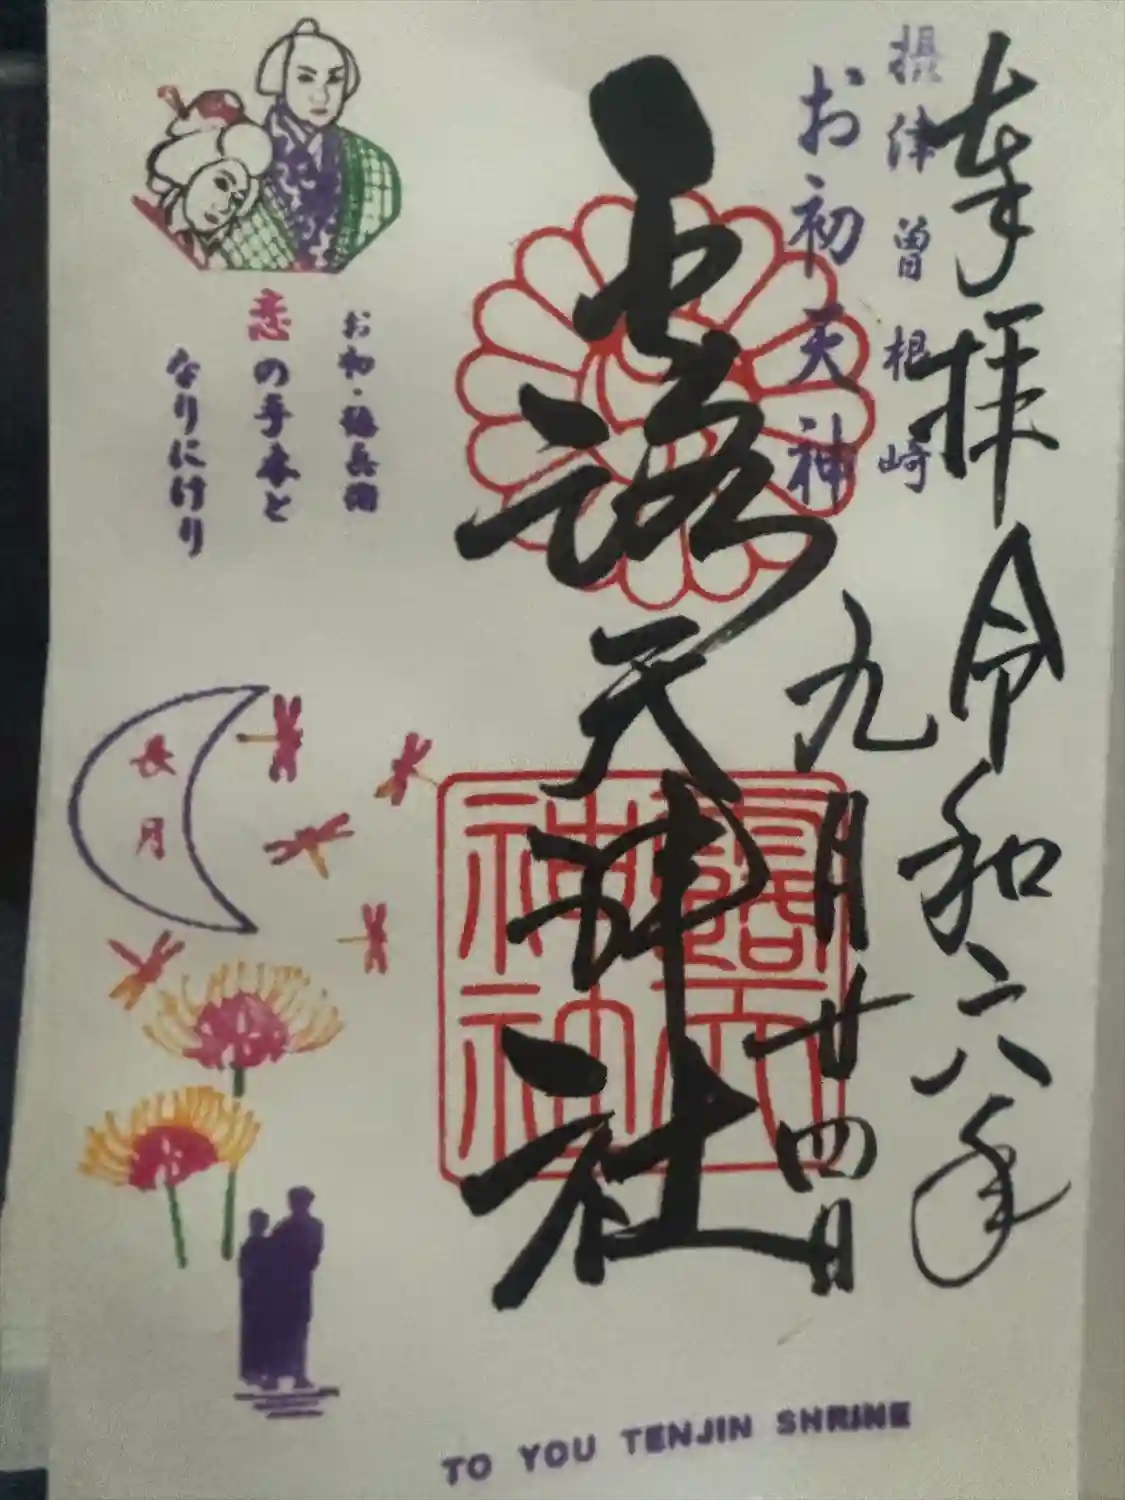 奉拝
令和六年
九月廿四日
摂津曽根崎
お初天神
露天神社
お初・徳兵衛
恋の手本と
なりにけり
長月
露天
神社
TO YOU TENJIN SHRINE